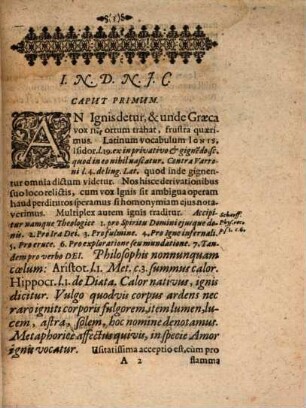 §(1)§
I. N. D. N. J. C
CAPUT PRIMUM.
AN Ignis detur, & unde Græca
vox πῦρ ortum trahat, frustra quæri-
mus. Latinum vocabulum IGNIS,
Isidor. l.19. ex in privativo & gignēdo sc.
quod in eo nihil nascatur. Contra Varro-
ni l.4. de ling. Lat. quod inde gignen-
tur omnia dictum videtur. Nos hisce derivationibus
suo loco relictis, cum vox Ignis sit ambigua operam
haud perdituros speramus si homonymiam ejus nota-
verimus. Multiplex autem ignis traditur. Accipi-
tur namque Theologicè 1. pro Spiritu Domini ejusque do-
nis. 2. Pro Ira Dei. 3. Pro fulmine. 4. Pro Igne infernali.
5. Pro cruce. 6. Pro exploratione seu mundatione. 7. Tan-
dem pro verbo DEI. Philosophis nonnunquam
cælum: Aristot. l.1. Met. c.3. summus calor.
Hippocr. l.1. de Diæta. Calor nativus, ignis
dicitur. Vulgo quodvis corpus ardens nec
rarò igniti corporis fulgorem, item lumen, lu-
cem, astra, solem, hoc nomine denotamus.
Metaphoricè affectus quivis, in specie Amor
ignis vocatur. Usitatissima acceptio est, cùm pro
A 2 flamma